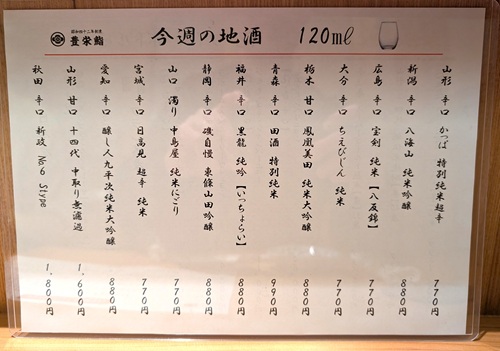 昭和四十二年創業
豊栄鮨
今週の地酒 120ml
山形 辛口 かっぱ 特別純米超辛 770円
新潟 辛口 八海山 純米吟醸 880円
広島 辛口 宝剣 純米【八反錦】 770円
大分 辛口 ちえびじん 純米 770円
栃木 甘口 鳳凰美田 純米大吟醸 880円
青森 辛口 田酒 特別純米 990円
福井 辛口 黒龍 純吟【いっちょらい】 880円
静岡 辛口 磯自慢 東條山田吟醸 880円
山口 濁り 中島屋 純米にごり 770円
宮城 辛口 日高見 超辛 純米 770円
愛知 辛口 醸し人九平次純米大吟醸 880円
山形 甘口 十四代 中取り無濾過 1。600円
秋田 辛口 新政 No6 Stype 1。800円